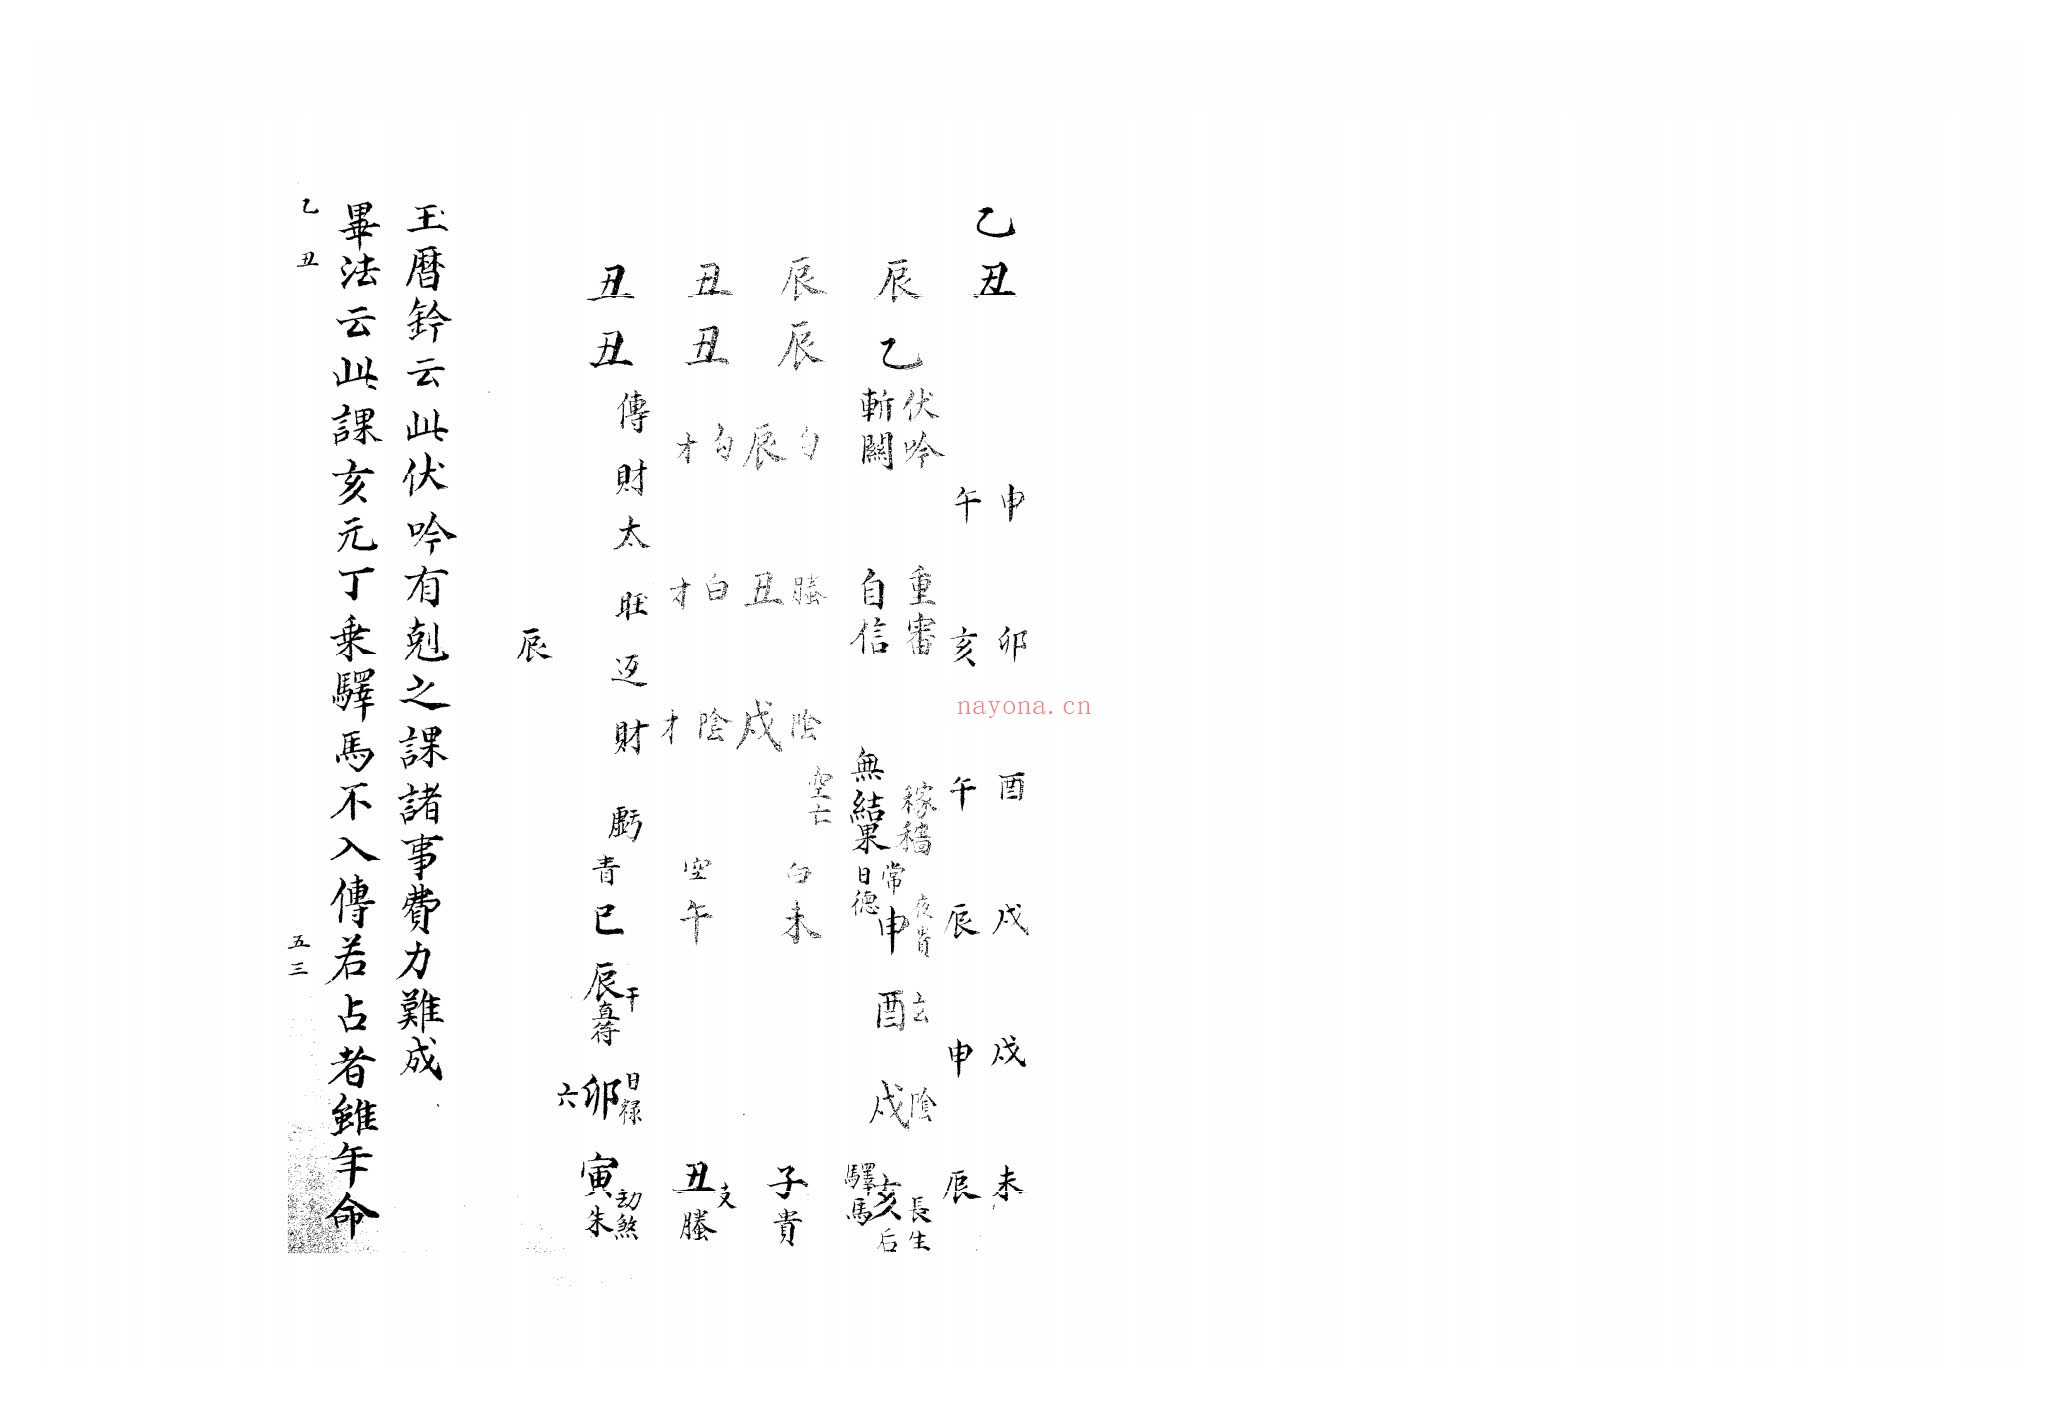 乙丑
申 卯 酉 戌 戌 未
午 亥 午 辰 申 辰
辰乙
伏吟 重審 稼穡
斬關 自信 無結果
辰辰
勾辰勾才
螣丑白才
陰戌陰才
空亡
丑丑
丑丑
傳財太旺返財虧
常 日德 申 夜貴
酉 玄
戌 陰
驛馬 亥 后 長生
白 未
子 貴
空 午
丑 支 螣
青 巳
辰 干 直符
六 卯 日祿
寅 刼煞 朱
辰
玉曆鈐云此伏吟有剋之課諸事費力難成
畢法云此課亥元丁乗驛馬不入傳若占者雖年命
乙丑
五三
nayona.cn